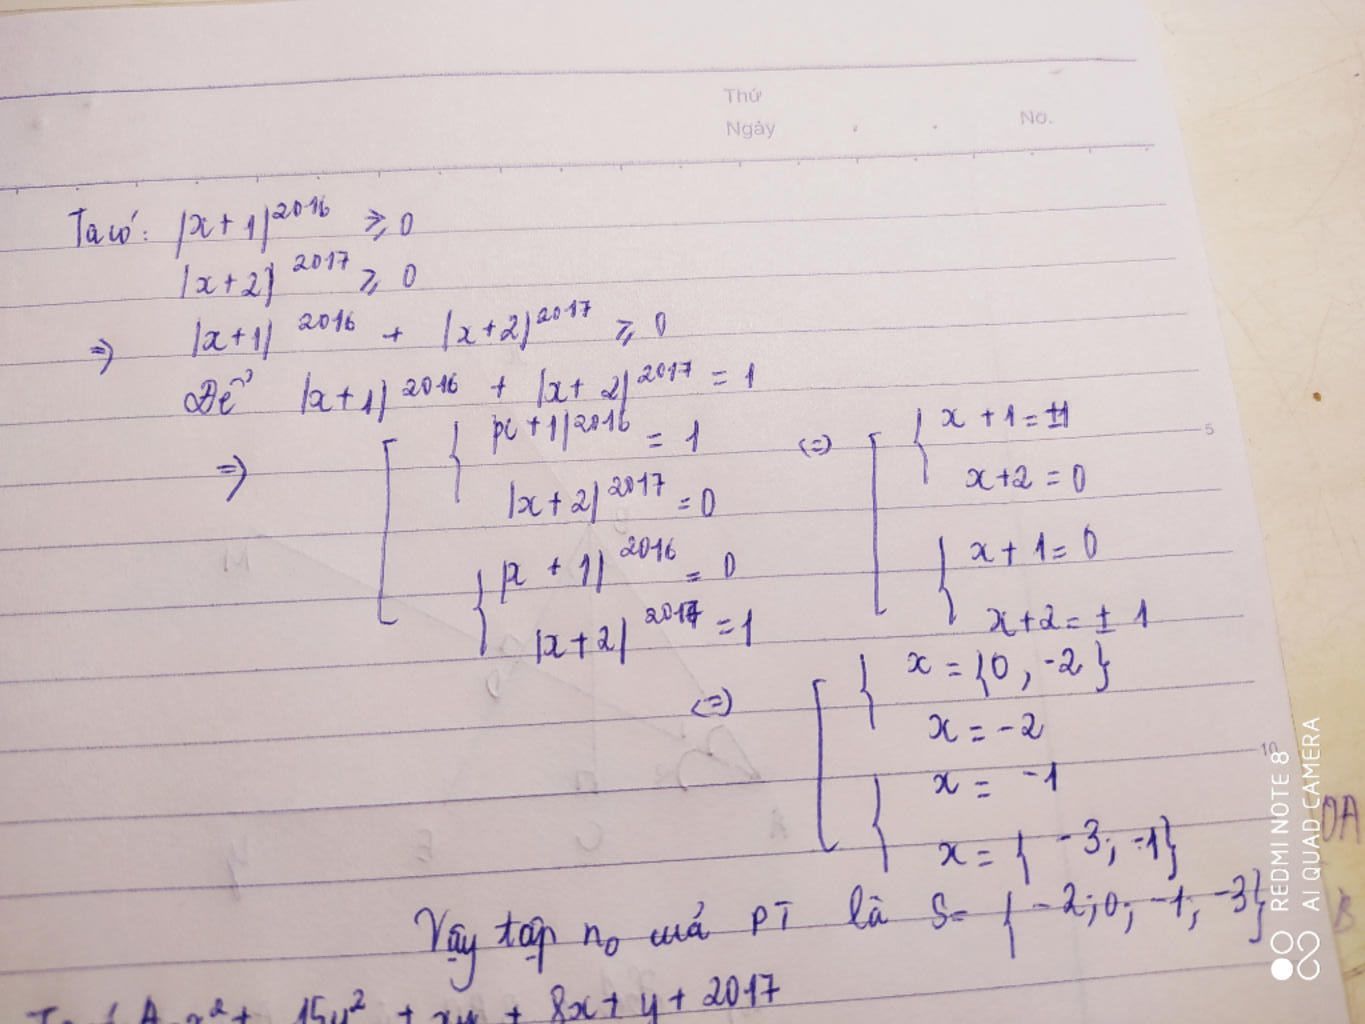 Thứ
Ngày
No.
Ta có: |x+1|^2016 ⩾ 0
|x+2|^2017 ⩾ 0
=> |x+1|^2016 + |x+2|^2017 ⩾ 0
Để |x+1|^2016 + |x+2|^2017 = 1
=> [ { |x+1|^2016 = 1 <=> [ { x+1 = ±1
|x+2|^2017 = 0 x+2 = 0
{ |x+1|^2016 = 0 { x+1 = 0
|x+2|^2017 = 1 x+2 = ± 1
<=> [ { x = {0, -2}
x = -2
{ x = -1
x = { -3; -1}
Vậy tập no củả PT là S= { -2; 0; -1; -3}
x² + 15y² + xy + 8x + y + 2017
5
10
REDMI NOTE 8
AI QUAD CAMERA